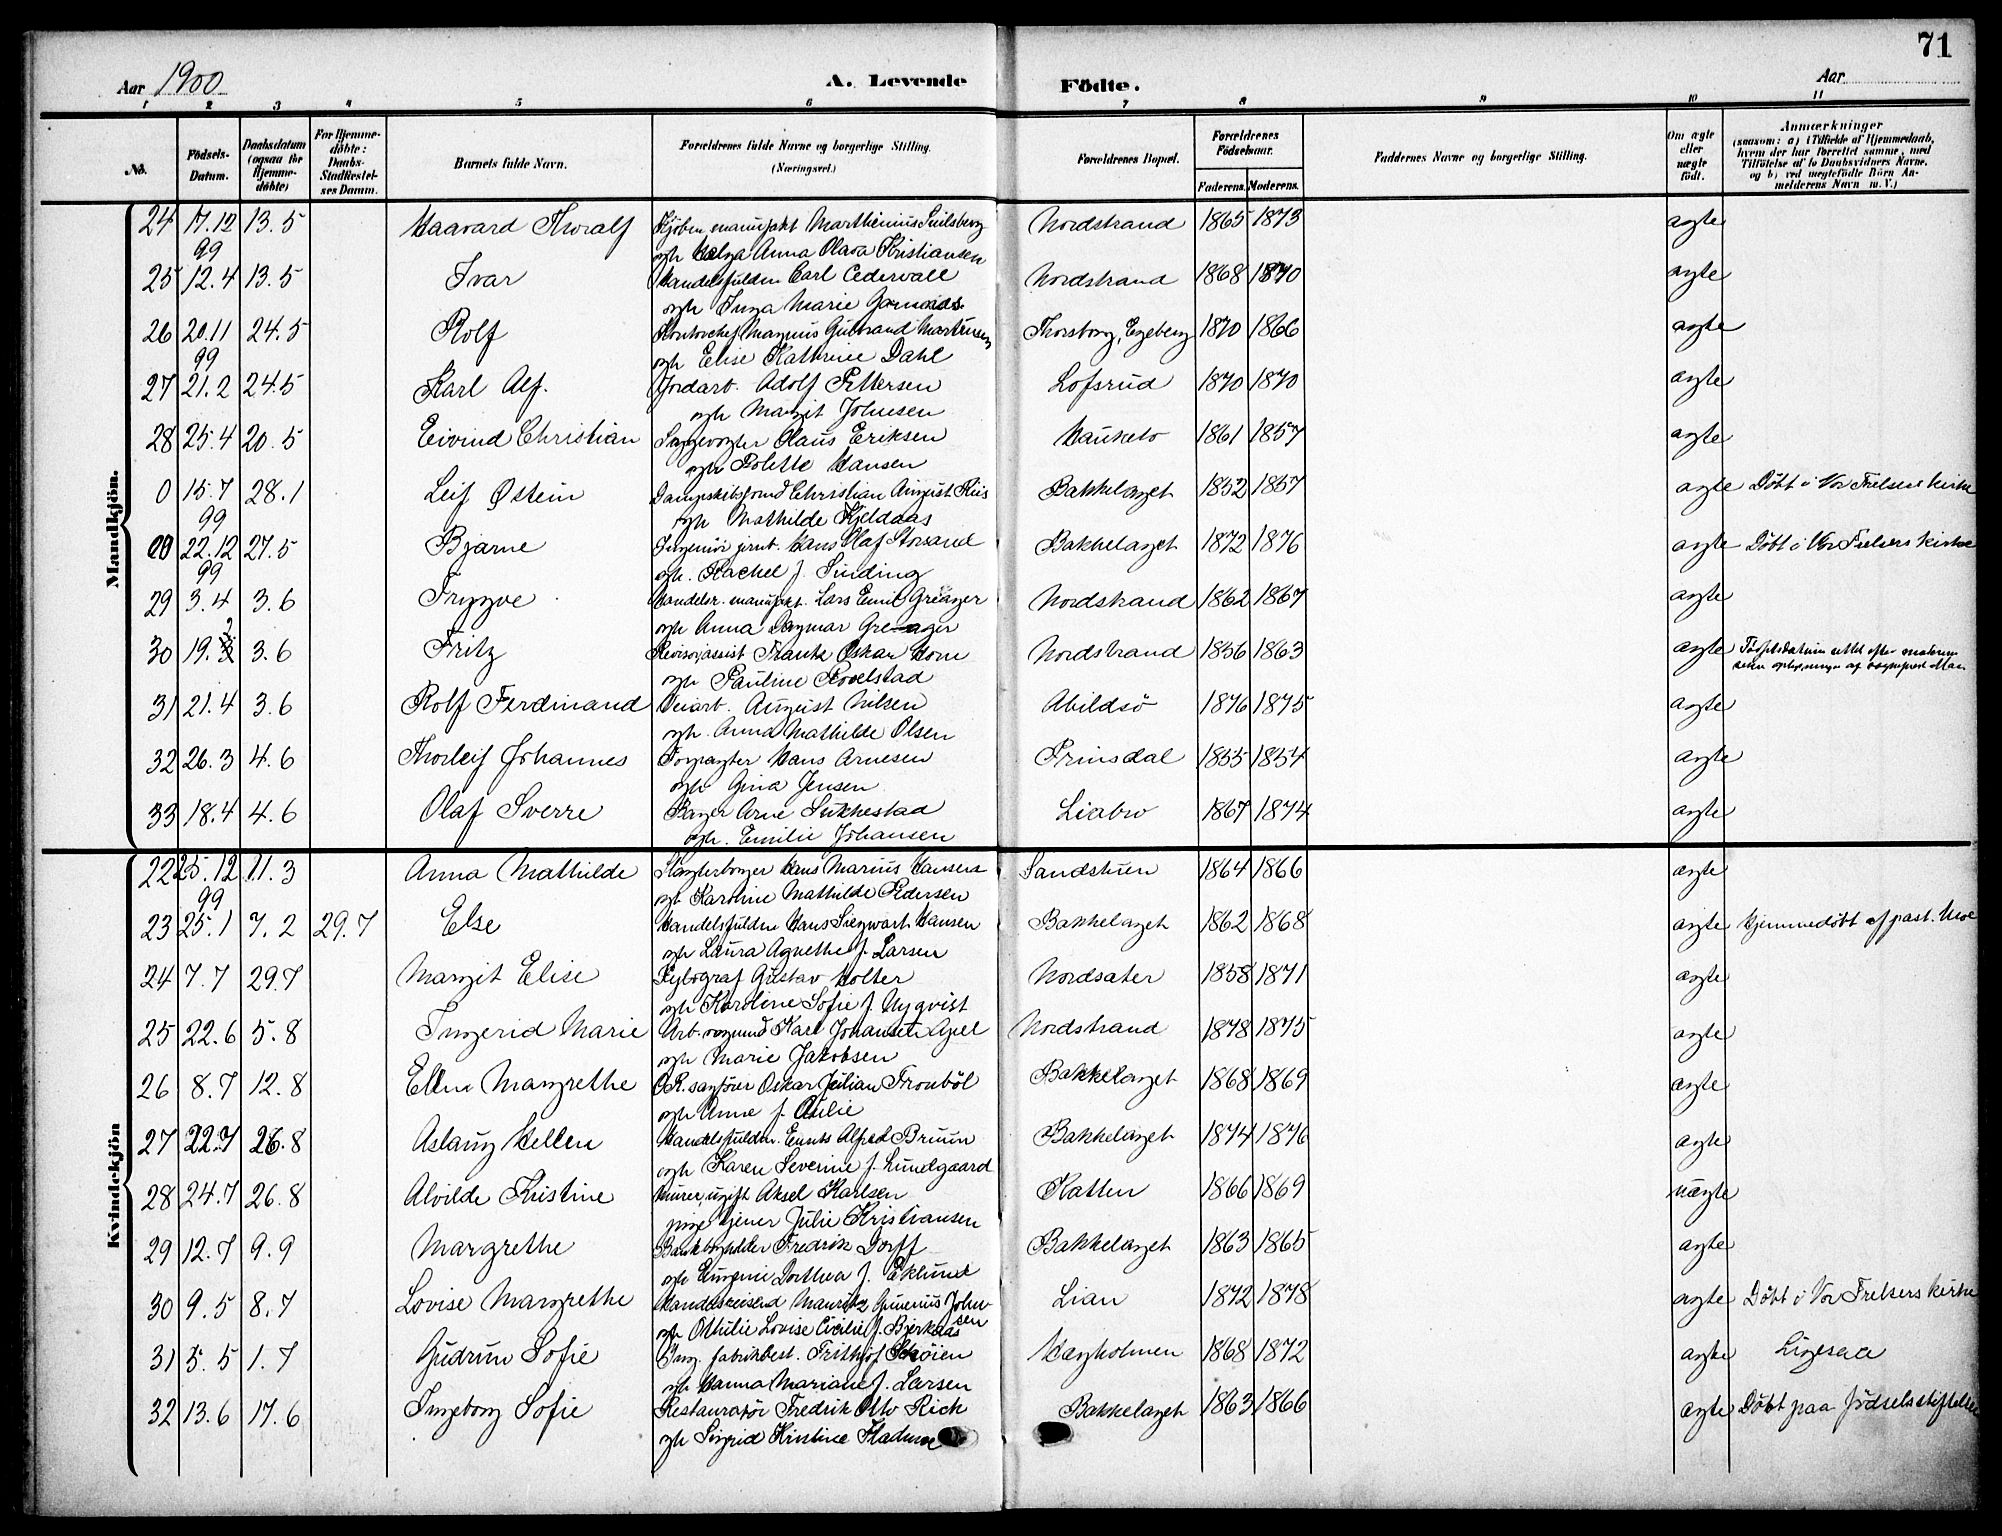 71
Aar 1900
A. Levende Födte.
Aar
1 2 3 4 5 6 7 8 9 10 11
No.
Födsels-Datum.
Daabsdatum (ogsaa for Hjemme-döbte)
For Hjemme-döbte: Daabs-Stadfæstel-ses Datum.
Barnets fulde Navn.
Forældrenes fulde Navne og borgerlige Stilling. (Næringsvei.)
Forældrenes Bopæl.
Forældrenes Födselsaar.
Faderens. Moderens.
Faddernes Navne og borgerlige Stilling.
Om ægte eller uægte födt.
Anmærkninger
(saasom: a) i Tilfælde af Hjemmedaab,
hvem der har forrettet samme, med
Tilföielse af to Daabsvidners Navne,
og b) ved uægtefödte Börn An-
melderens Navn m. V.)
Mandkjön.
24 17.12 13.5 Haavard Thoralf Marthinius Nordstrand 1865 1873 ægte
99 Anna Olava Kristiansen
25 12.4 13.5 Ivar Handelsfuldm Carl Cedervall Nordstrand 1868 1870 ægte
Inga Marie
26 20.11 24.5 Rolf Kontorchef Magnus Gulbrand Martinsen Thorsborg, Ekeberg 1870 1866 ægte
99 Elise Kathrine Dahl
27 21.2 24.5 Karl Alf. Jordarb. Adolf Pettersen Lofsrud 1870 1870 ægte
Margit Johnsen
28 25.4 20.5 Eivind Christian Olaus Eriksen Hauketo 1861 1857 ægte
Polette Hansen
0 15.7 28.1 Leif Østein Christian August Riis Bakkelaget 1852 1857 ægte Döbt i Vor Frelsers kirke
99 Mathilde Kjeldaas
00 22.12 27.5 Bjarne Hans Olaf Bakkelaget 1872 1876 ægte Döbt i Vor Frelsers kirke
99 Rachel f. Sinding
29 3.4 3.6 Trygve Lars Emil Greager Nordstrand 1862 1867 ægte
Anna Dagmar Greager
30 19.3 3.6 Fritz Revisorassist Frantz Oskar Horn Nordstrand 1856 1863 ægte Födselsdatum rettet efter
2 Pauline
31 21.4 3.6 Rolf Ferdinand Veiarb. August Nilsen Abildsö 1876 1875 ægte
Anna Mathilde Olsen
32 26.3 4.6 Thorleif Johannes Forpagter Hans Arnesen Prinsdal 1855 1854 ægte
Gina Jensen
33 18.4 4.6 Olaf Sverre Bager Arne Sukkestad Liabro 1867 1874 ægte
Emilie Johansen
Kvindekjön
22 25.12 11.3 Anna Mathilde Hans Marius Hansen Sandstuen 1864 1866 ægte
99 Karoline Mathilde Pedersen
23 25.1 7.2 29.7 Else Handelsfuldm Hans Siegwart Hansen Bakkelaget 1862 1868 ægte Hjemmedöbt af past. Moe
Laura Agnethe f. Larsen
24 7.7 29.7 Margit Elise Xylograf Gustav Holter Nordsater 1858 1871 ægte
Karoline Sofie f. Nyqvist
25 22.6 5.8 Ingerid Marie Karl Johansen Nordstrand 1878 1875 ægte
Marie Jakobsen
26 8.7 12.8 Ellen Margrethe O.R. sagförer Oskar Julian Tronböl Bakkelaget 1868 1869 ægte
Anne f. Aulie
27 22.7 26.8 Aslaug Hellen Handelsfuldm. Alfred Bruun Bakkelaget 1874 1876 ægte
Karen Severine f. Lundgaard
28 24.7 26.8 Alvilde Kristine Murer, ugift Aksel Karlsen Katten 1866 1869 uægte
pige tjener Julie Kristiansen
29 12.7 9.9 Margrethe Bankbogholder Fredrik Dorff Bakkelaget 1863 1865 ægte
Eugenie Dorthea f. Eklund
30 9.5 8.7 Lovise Margrethe Handelsreisend Mauritz John- Lian 1872 1878 ægte Döbt i Vor Frelsers kirke
Othilie Lovise Cicilie f. Bjerkaas sen
31 5.5 1.7 Gudrun Sofie fabrikbest. Frithjof Schöien Hægholmen 1868 1872 ægte Ligesaa
Hanna Mariane f. Larsen
32 13.6 17.6 Ingeborg Sofie Restauratör Fredrik Otto Rich Bakkelaget 1863 1866 ægte Döbt paa Födselsstiftelsen
Sigrid Kristine